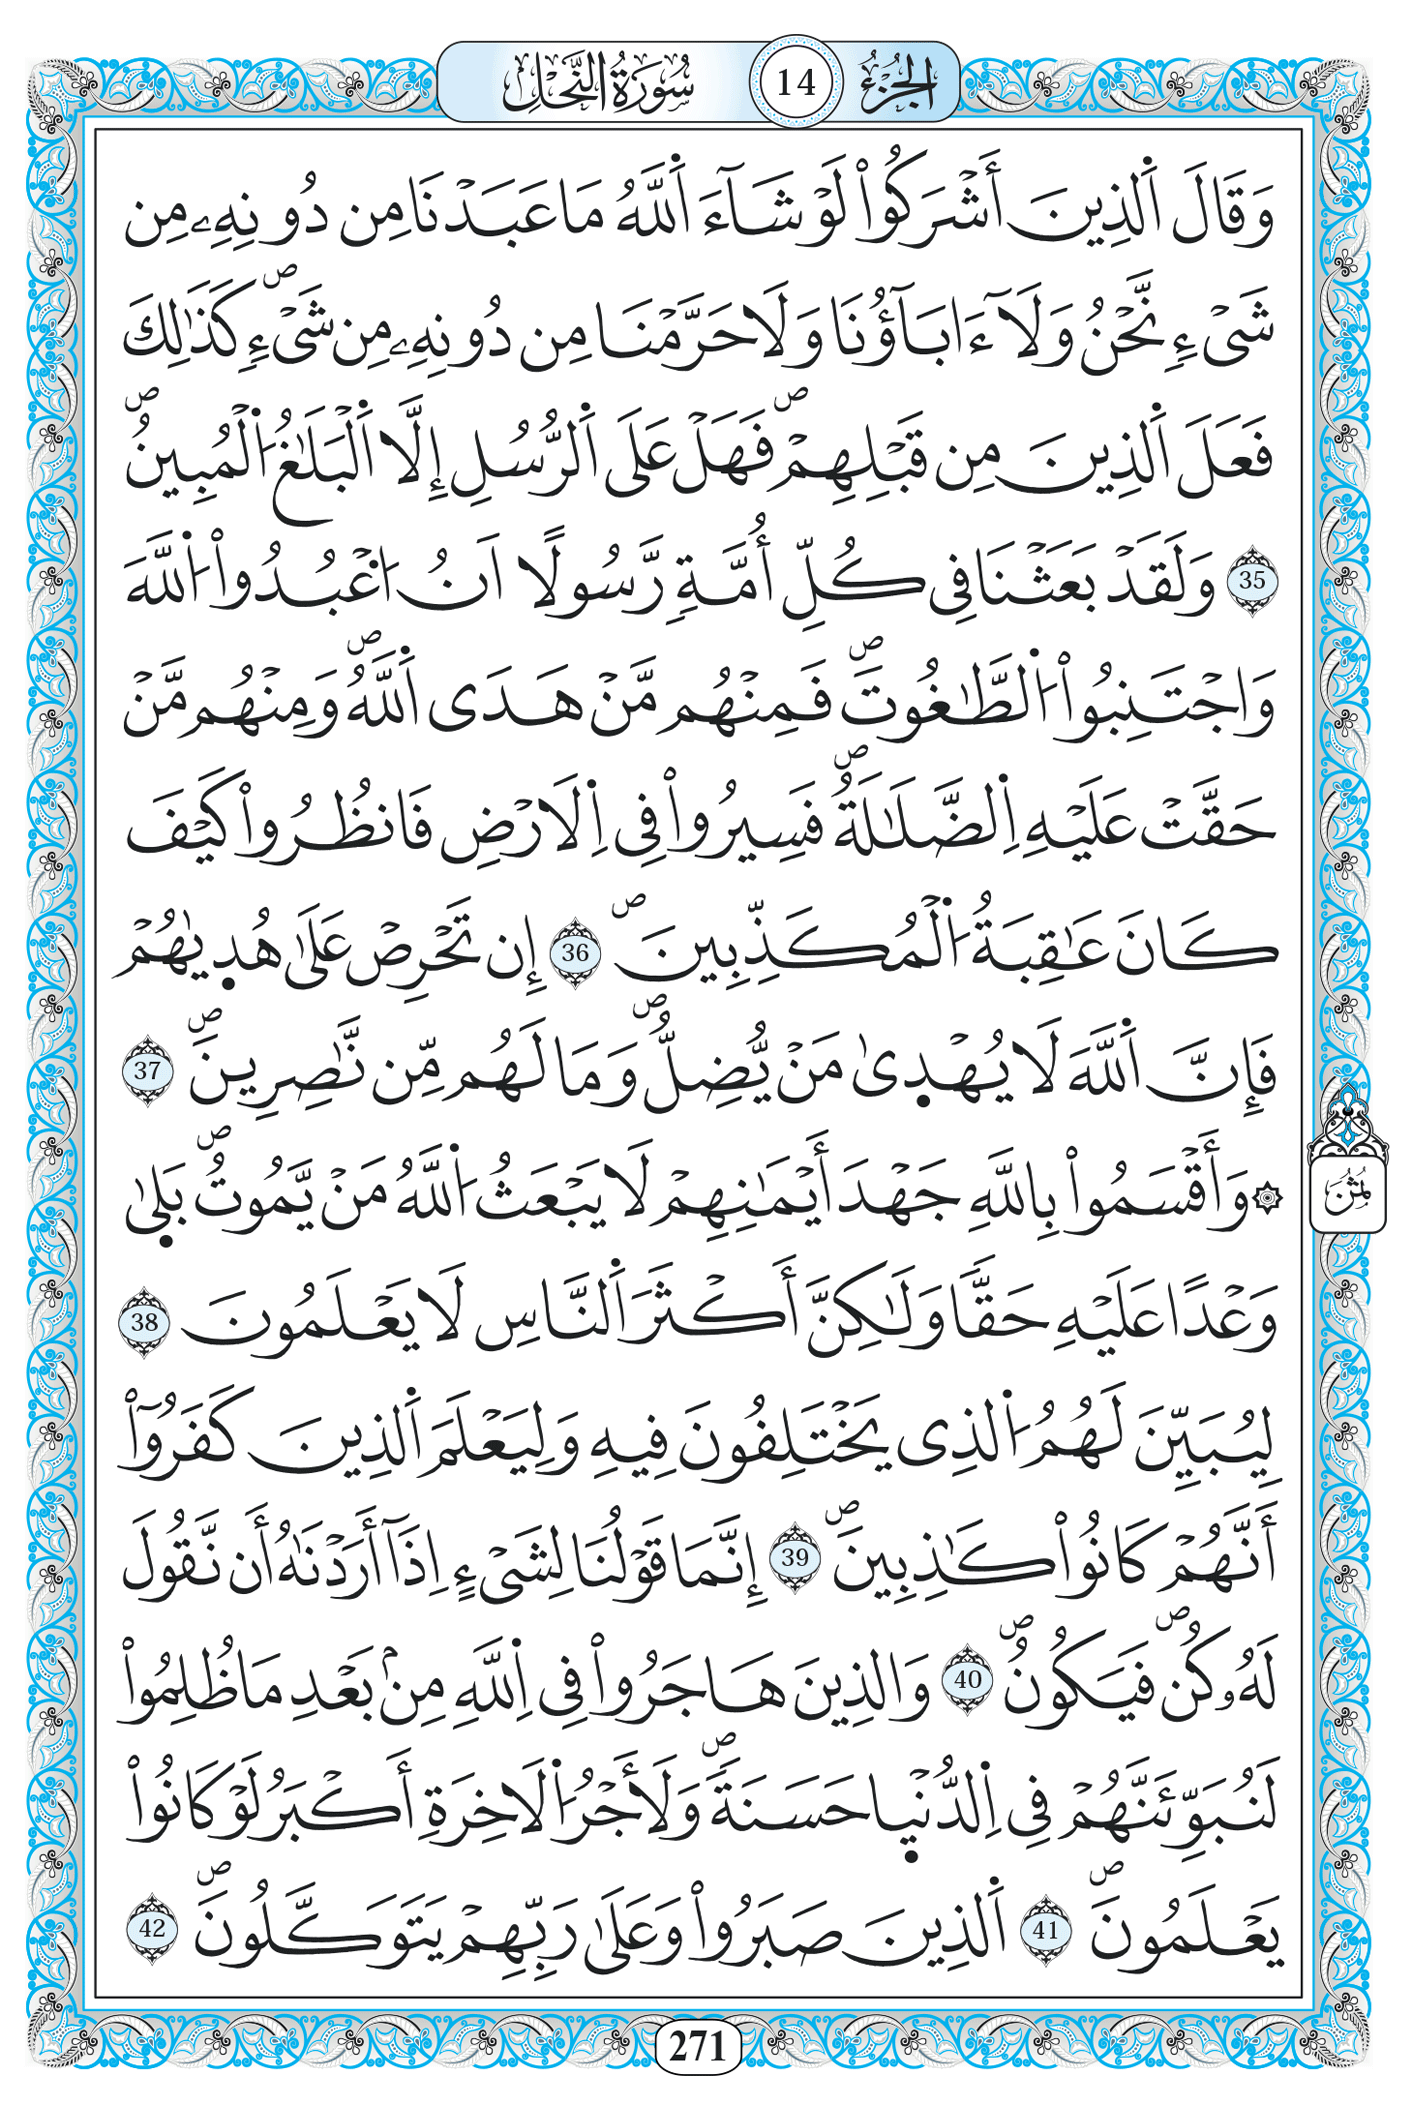 الجُزْءُ 14 سُورَةُ النَّحْلِ
وَقَالَ اَ۬لذِينَ أَشْرَكُواْ لَوْ شَآءَ اَ۬للَّهُ مَا عَبَدْنَا مِن دُونِهِۦ مِن
شَيْءٖ نَّحْنُ وَلَآ ءَابَآؤُنَا وَلَا حَرَّمْنَا مِن دُونِهِۦ مِن شَيْءٖۖ كَذَٰلِكَ
فَعَلَ اَ۬لذِينَ مِن قَبْلِهِمْۖ فَهَلْ عَلَى اَ۬لرُّسُلِ إِلَّا اَ۬لْبَلَٰغُ اُ۬لْمُبِينُۖ
35 وَلَقَدْ بَعَثْنَا فِي كُلِّ أُمَّةٖ رَّسُولًا اَنُ اُ۟عْبُدُواْ اُ۬للَّهَ
وَاجْتَنِبُواْ اُ۬لطَّٰغُوتَۖ فَمِنْهُم مَّنْ هَدَى اَ۬للَّهُۖ وَمِنْهُم مَّنْ
حَقَّتْ عَلَيْهِ اِ۬لضَّلَٰلَةُۖ فَسِيرُواْ فِي اِ۬لَارْضِ فَانظُرُواْ كَيْفَ
كَانَ عَٰقِبَةُ اُ۬لْمُكَذِّبِينَۖ 36 إِن تَحْرِصْ عَلَىٰ هُد۪يٰهُمْ
فَإِنَّ اَ۬للَّهَ لَا يُهْد۪ىٰ مَنْ يُّضِلُّۖ وَمَا لَهُم مِّن نَّٰصِرِينَۖ 37
۞ وَأَقْسَمُواْ بِاللَّهِ جَهْدَ أَيْمَٰنِهِمْ لَا يَبْعَثُ اُ۬للَّهُ مَنْ يَّمُوتُۖ بَل۪ىٰ
وَعْدًا عَلَيْهِ حَقّٗا وَلَٰكِنَّ أَكْثَرَ اَ۬لنَّاسِ لَا يَعْلَمُونَ 38
لِيُبَيِّنَ لَهُمُ اُ۬لذِي يَخْتَلِفُونَ فِيهِ وَلِيَعْلَمَ اَ۬لذِينَ كَفَرُوٓاْ
أَنَّهُمْ كَانُواْ كَٰذِبِينَۖ 39 إِنَّمَا قَوْلُنَا لِشَيْءٍ اِذَآ أَرَدْنَٰهُ أَن نَّقُولَ
لَهُۥ كُنۖ فَيَكُونُۖ 40 وَالذِينَ هَاجَرُواْ فِي اِ۬للَّهِ مِنۢ بَعْدِ مَا ظُلِمُواْ
لَنُبَوِّئَنَّهُمْ فِي اِ۬لدُّنْي۪ا حَسَنَةٗۖ وَلَأَجْرُ اُ۬لَاخِرَةِ أَكْبَرُ لَوْ كَانُواْ
يَعْلَمُونَۖ 41 اَ۬لذِينَ صَبَرُواْ وَعَلَىٰ رَبِّهِمْ يَتَوَكَّلُونَۖ 42
ثُمُن
271